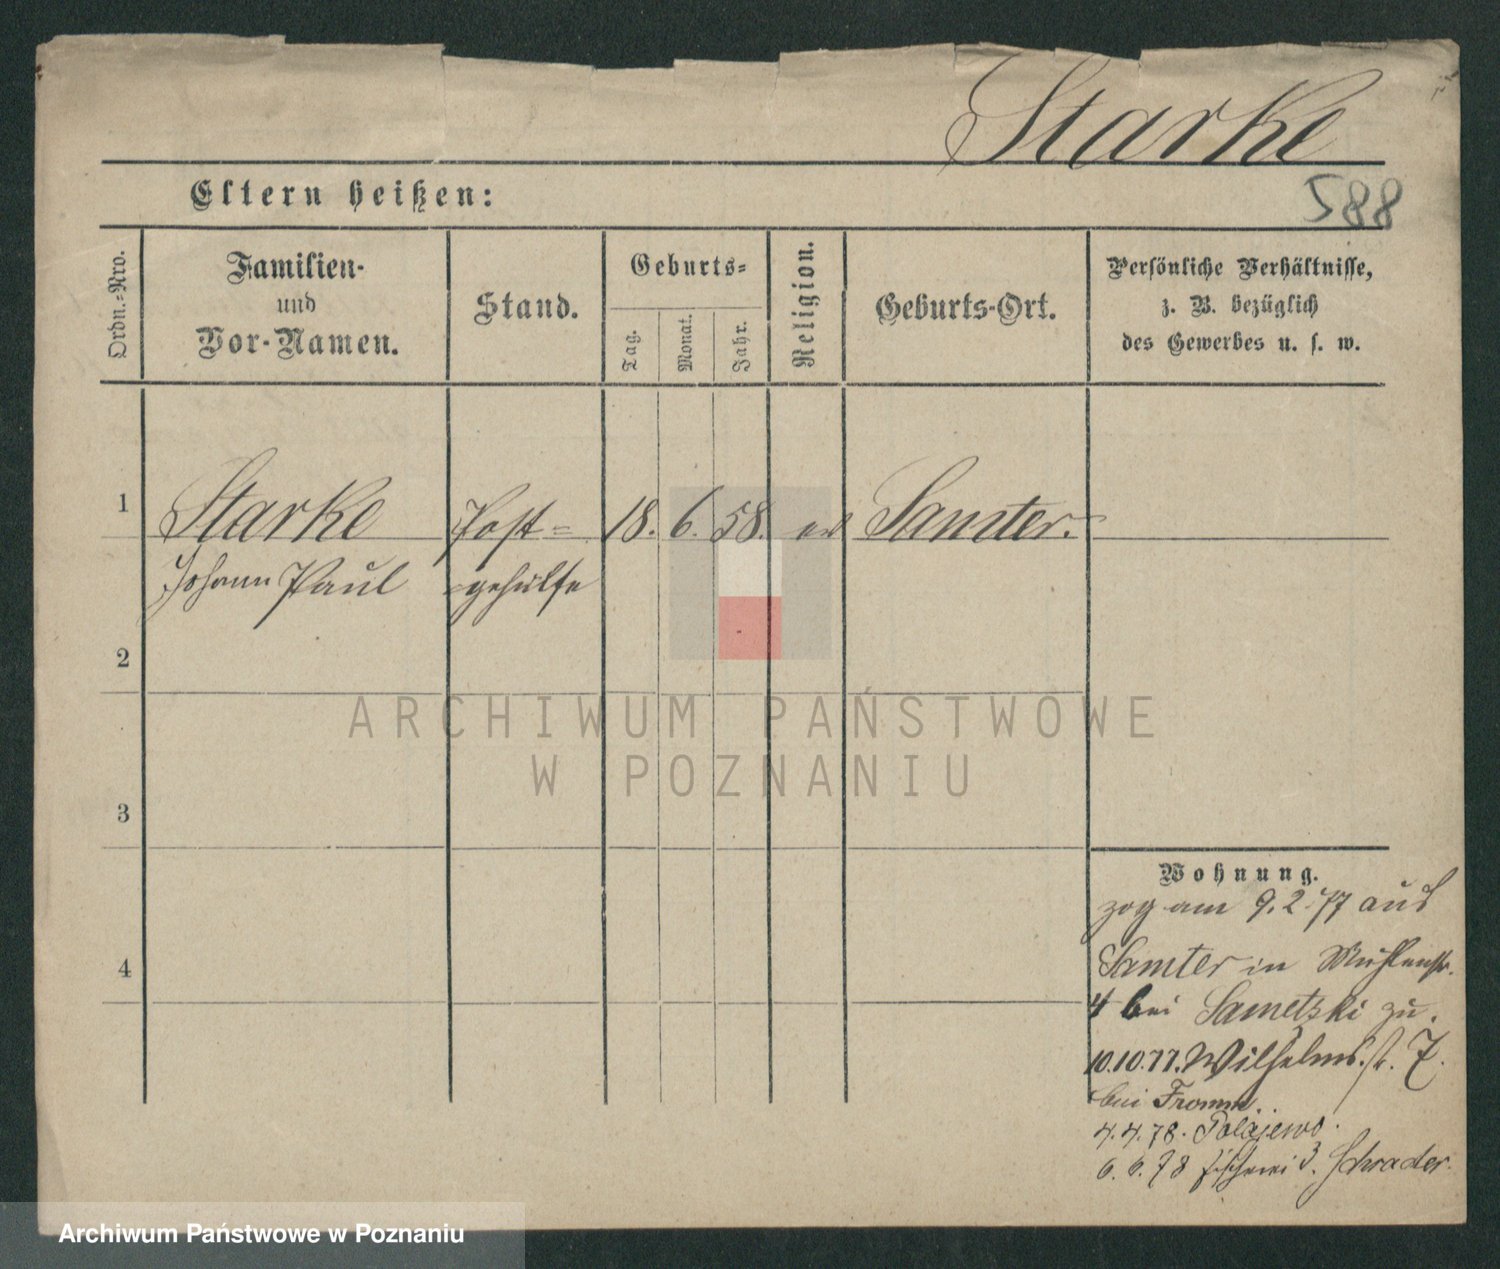 Starke
Eltern heißen:
588
Ordn.=Nro.
Familien-
und
Vor-Namen.
Stand.
Geburts=
Tag.
Monat.
Jahr.
Religion.
Geburts-Ort.
Persönliche Verhältnisse,
z. B. bezüglich
des Gewerbes u. s. w.
1
Starke
Post=
18. 6. 58.
ev
Samter.
Johann Paul
=gehülfe
2
3
4
Wohnung.
zog am 9.2.77 aus
Samter in Mühlenstr.
4 bei Sametzki zu.
10.10.77. Wilhelmsstr. 7.
bei Fromm.
4.4.78. Polajewo.
6.6.78 Fischerei 3. Schrader.
ARCHIWUM PAŃSTWOWE
W POZNANIU
Archiwum Państwowe w Poznaniu